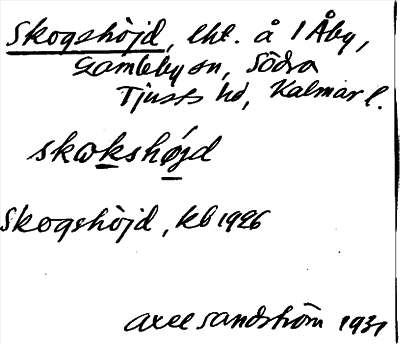 Skogshöjd, lht. å 1 Åby,
Gamleby sn, Södra
Tjusts hd, Kalmar l.
skωkshøjd
Skogshöjd, kb 1926
Axel Sandström 1931